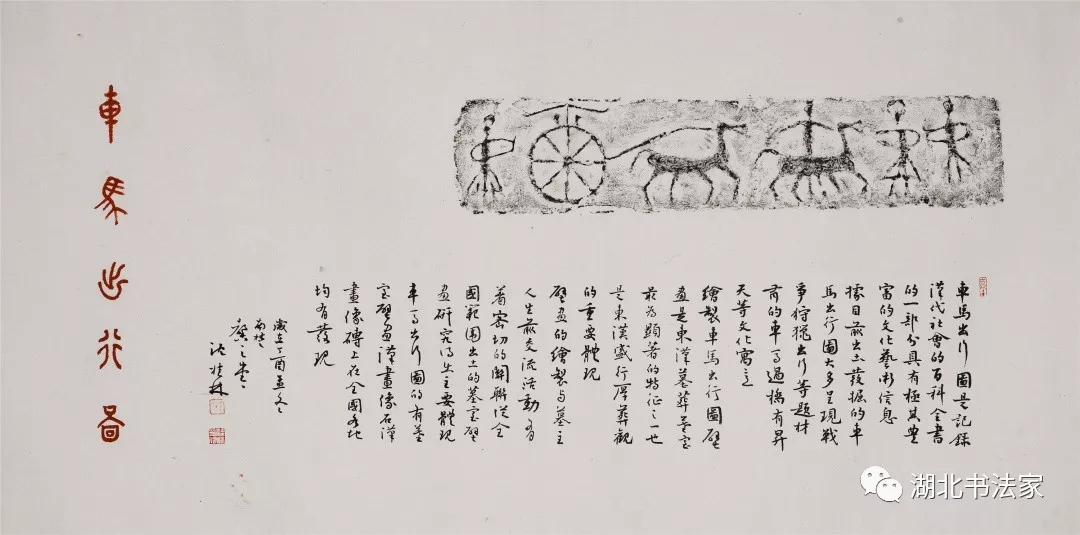 車馬出行圖是記錄
漢代社會的百科全書
的一部份具有極其豐
富的文化藝術信息
據目前出土發掘的車
馬出行圖大多呈現戰
爭狩獵出行等題材
有的車馬過橋有昇
天等文化寓意
繪製車馬出行圖壁
畫是東漢墓葬墓室
最為顯著的特征之一也
是東漢盛行厚葬觀
的重要體現
壁畫的繪製与墓主
人生前交流活動有
着密切的關聯從全
國範圍出土的墓室壁
畫研究得出主要體現
車馬出行圖的有墓
室壁畫漢畫像石漢
畫像磚上在全國各地
均有發現
歲在丁酉孟冬
南楚
車馬出行圖
湖北书法家